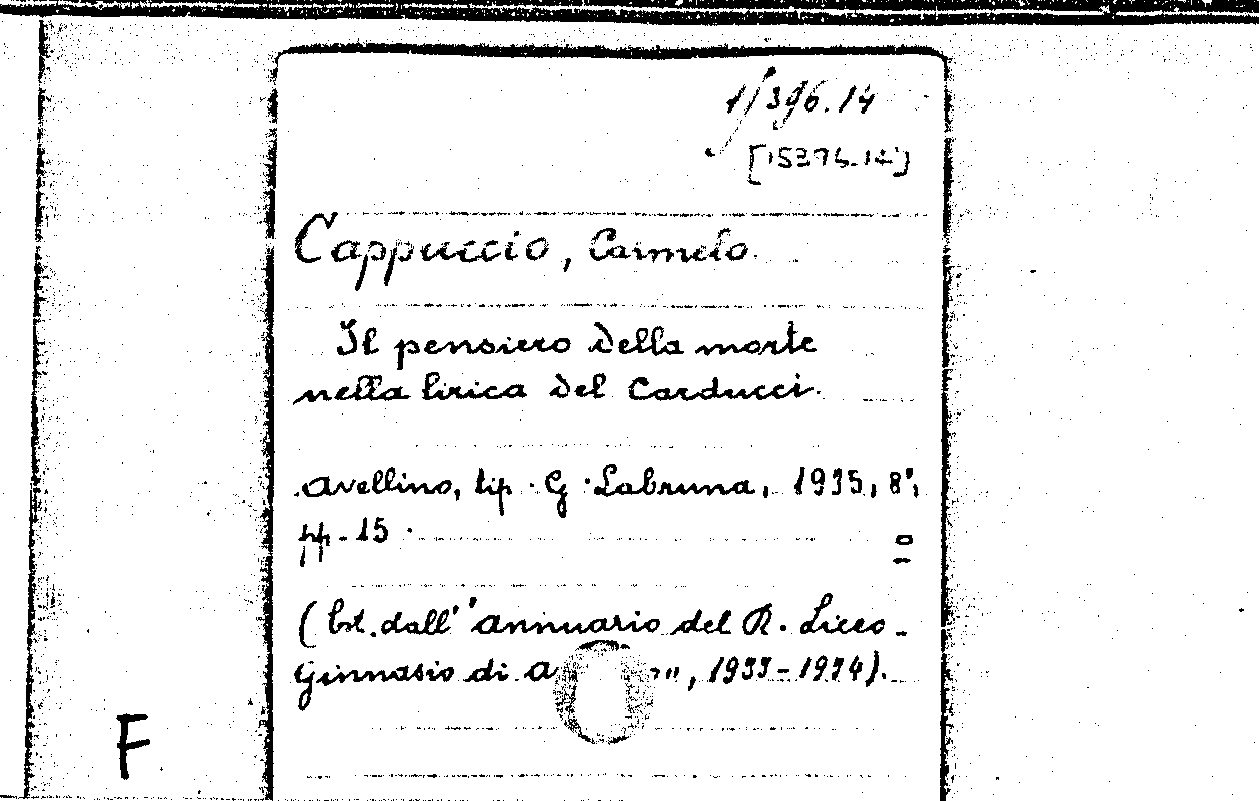 1/396.14
[15276.14]
Cappuccio, Carmelo.
Il pensiero della morte
nella lirica del Carducci.
Avellino, tip. G. Labruna, 1935, 8°,
pp. 15.
(Est. dall' "Annuario del R. Liceo-
Ginnasio di A no", 1933-1934).
F